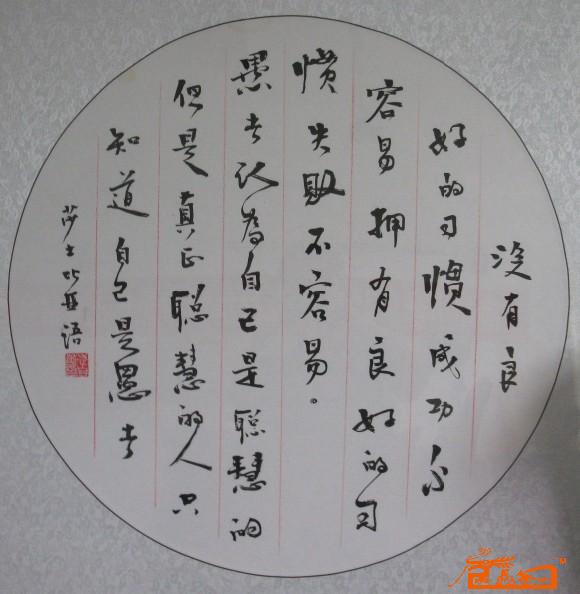 没有良
好的习惯成功不
容易拥有良好的习
惯失败不容易。
愚者认为自己是聪慧的
但是真正聪慧的人只
知道自己是愚者
莎士比亚语